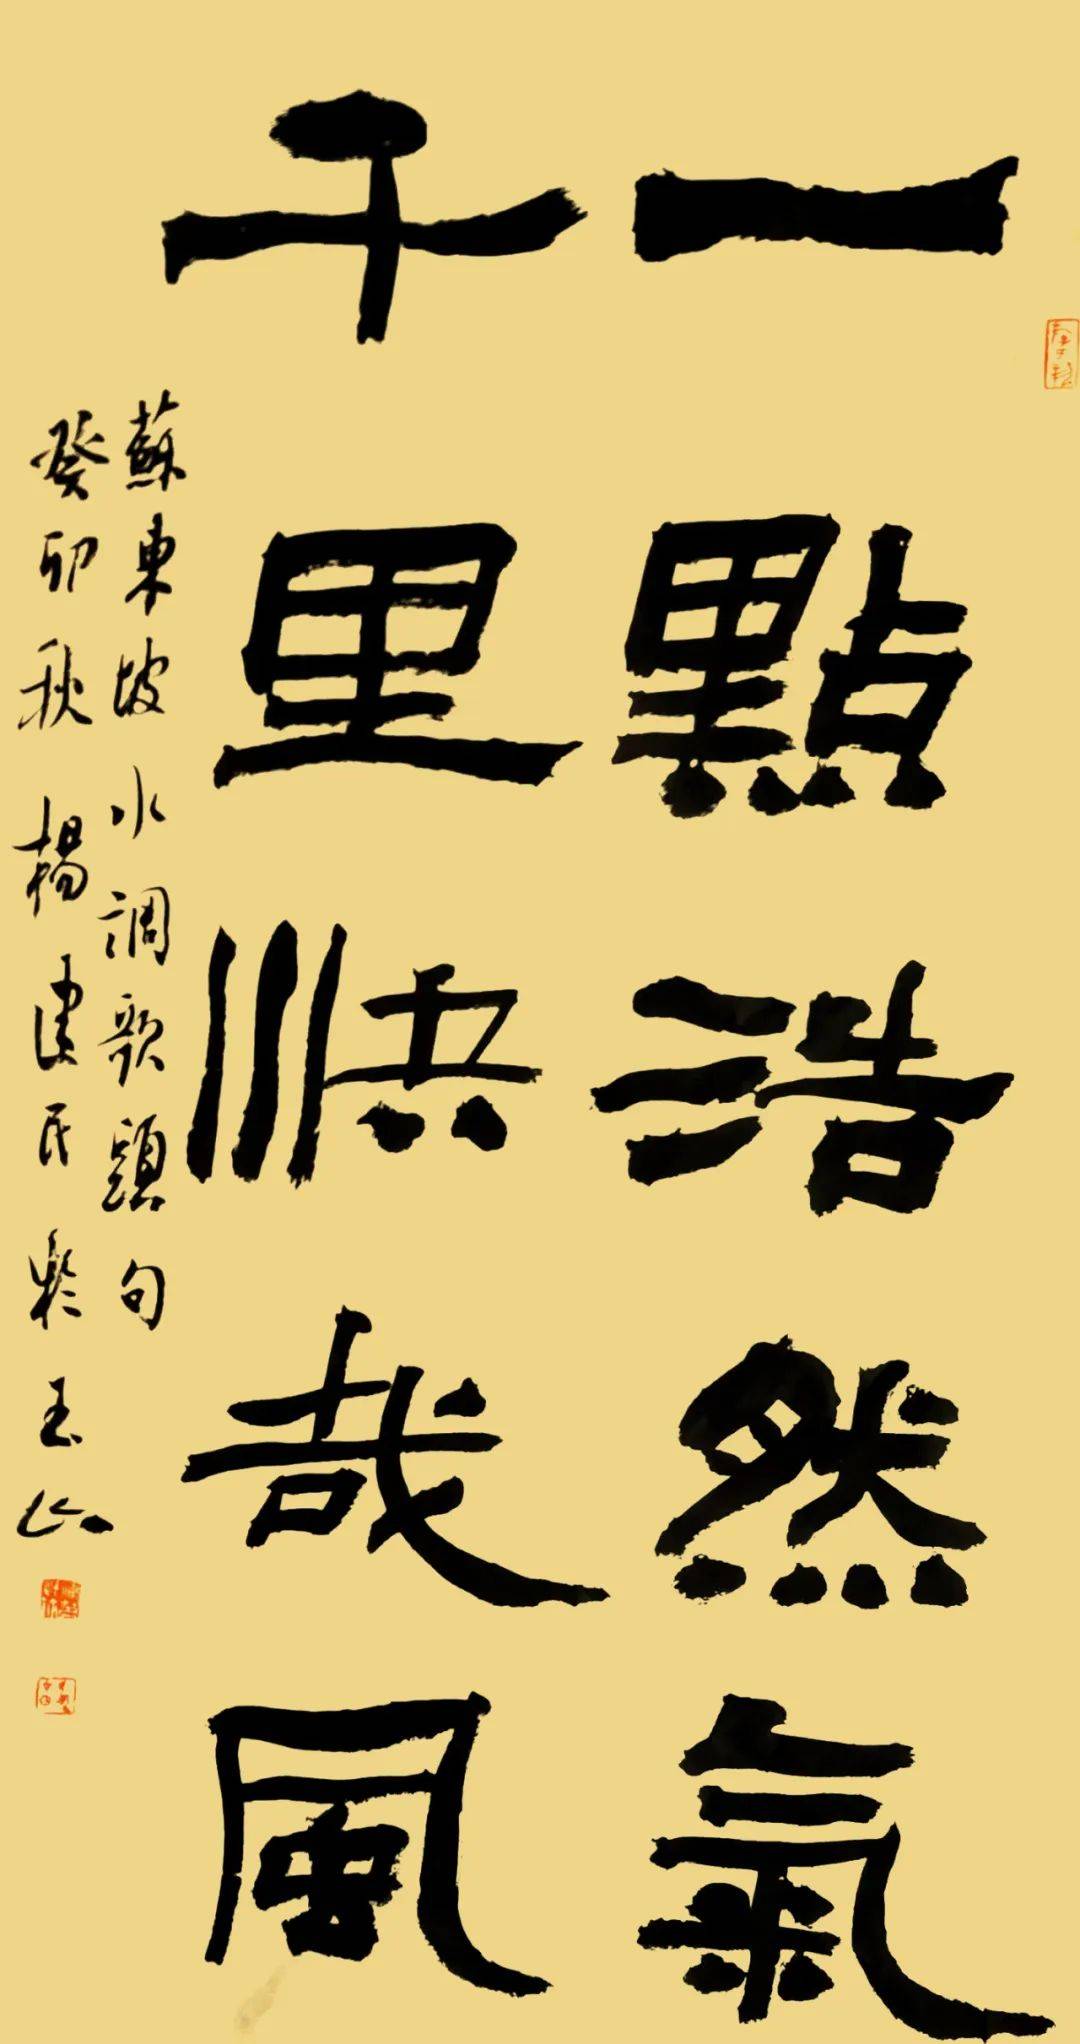 一點浩然氣
千里快哉風
蘇東坡水調歌頭句
癸卯秋楊建民於玉山